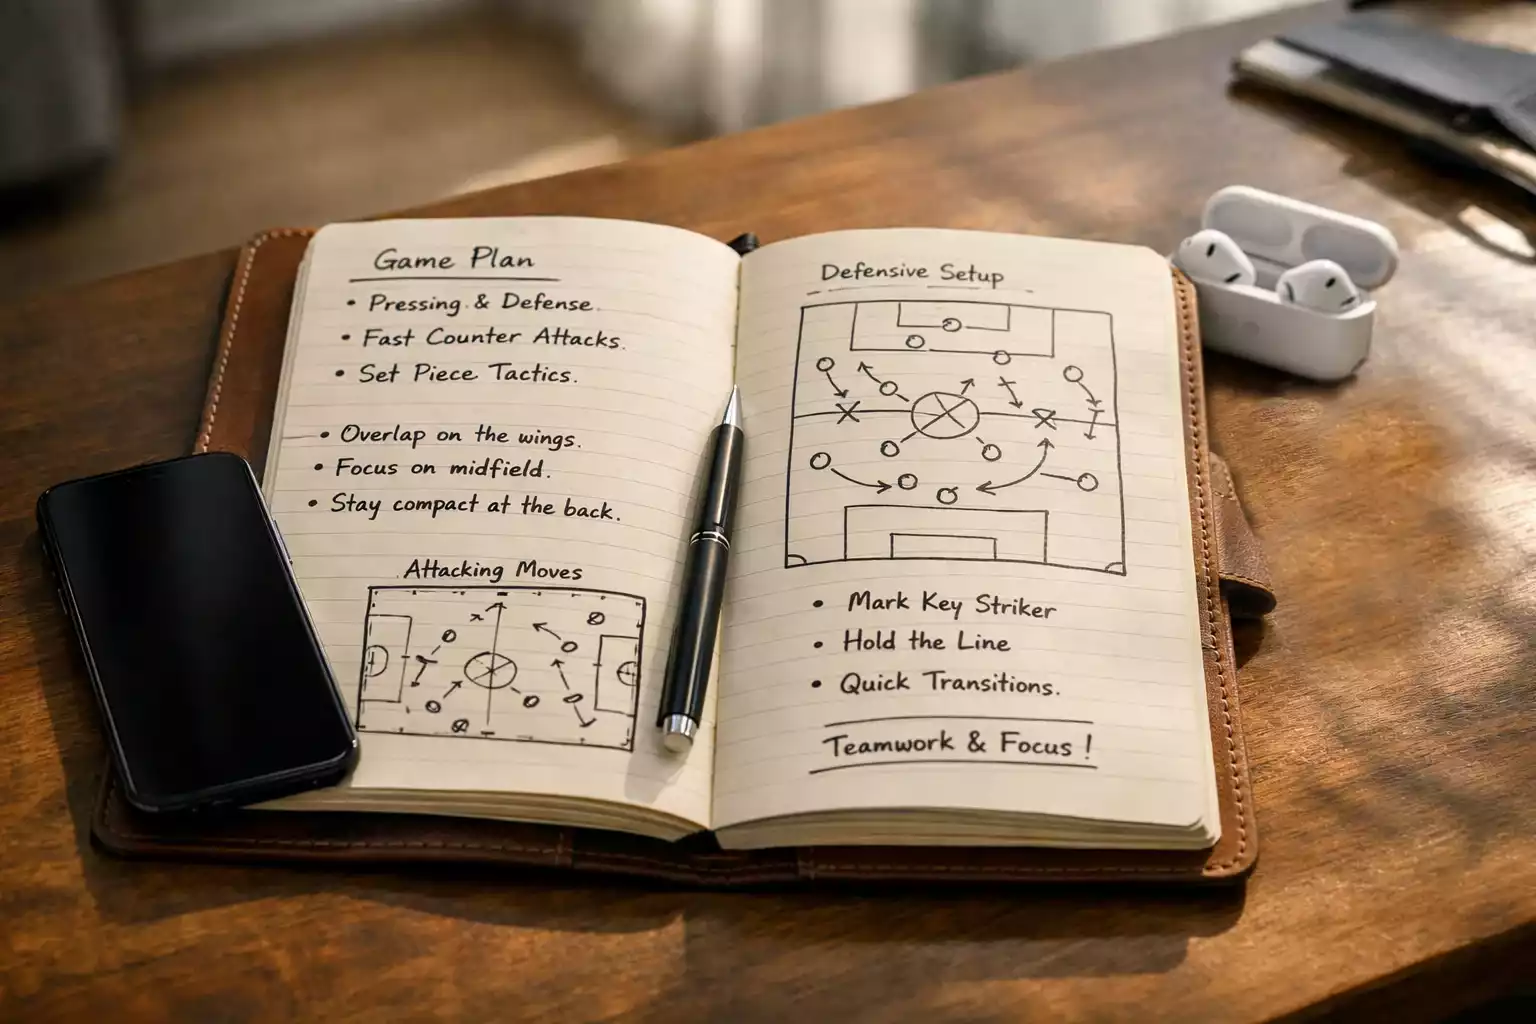 Game Plan
• Pressing & Defense.
• Fast Counter Attacks.
• Set Piece Tactics.
• Overlap on the wings.
• Focus on midfield.
• Stay compact at the back.
Attacking Moves
Defensive Setup
• Mark Key Striker
• Hold the Line
• Quick Transitions.
Teamwork & Focus !